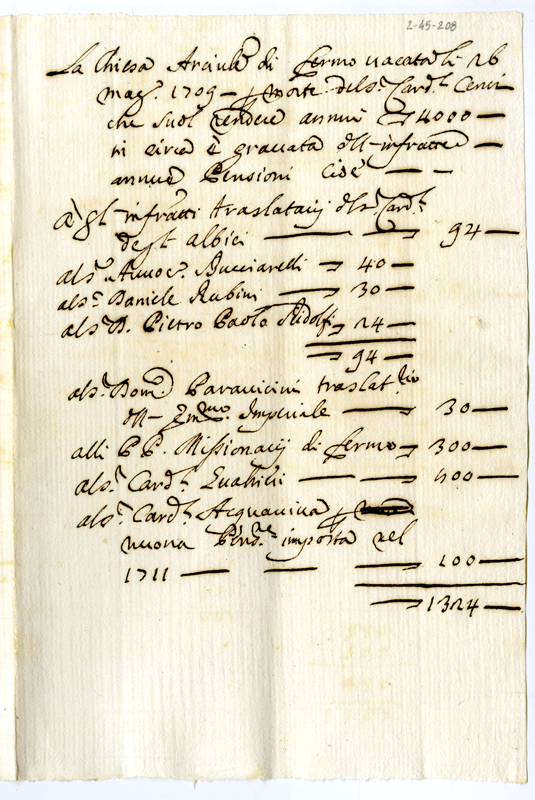 2-45-208
La Chiesa Arciv.le di fermo vacata li 26
mag.o 1709 - p morte del S.r Card.l Cenci
che suol rendere annui ▽ 4000 —
in circa è gravata dll'infratte —
annue Pensioni Cioè — —
A gl'infratti traslatarij del S.r Card.l
degl'Albici — — 94 —
al S.r Buccinrelli — 40 —
al S.r Daniele Rubini — 30 —
al S.r D. Pietro Paolo Ridolfi 24 —
94 —
al S.r Dom.o Paravicini traslat.rio
dll' Em.mo Imperiale — 30 —
alli PP. Missionarij di fermo — 300 —
al S.r Card.l — — 400 —
al S.r Card.l Acquaviva p
nuova Pens.ne imposta nel
1711 — — — 100 —
— 1324 —